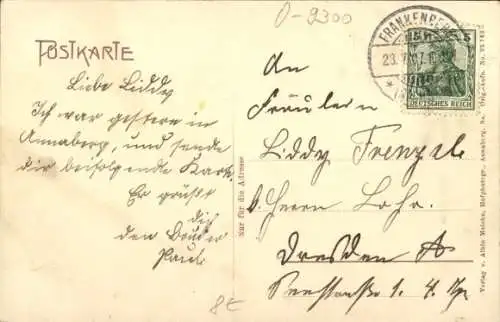 O-9300
POSTKARTE
Liebe Liddy
Ich war gestern in
Annaberg, und sende
dir beifolgende Karte.
Er grüßt
dich
den Bruder
Paul
8€
Nur für die Adresse
FRANKENBERG
DEUTSCHES REICH
An
Fräulein
Liddy Frenzel
b. Herrn Lohr.
Dresden A
Seestraße 1. 4.
Verlag v. Albin Meiche, Hofphotogr., Annaberg.